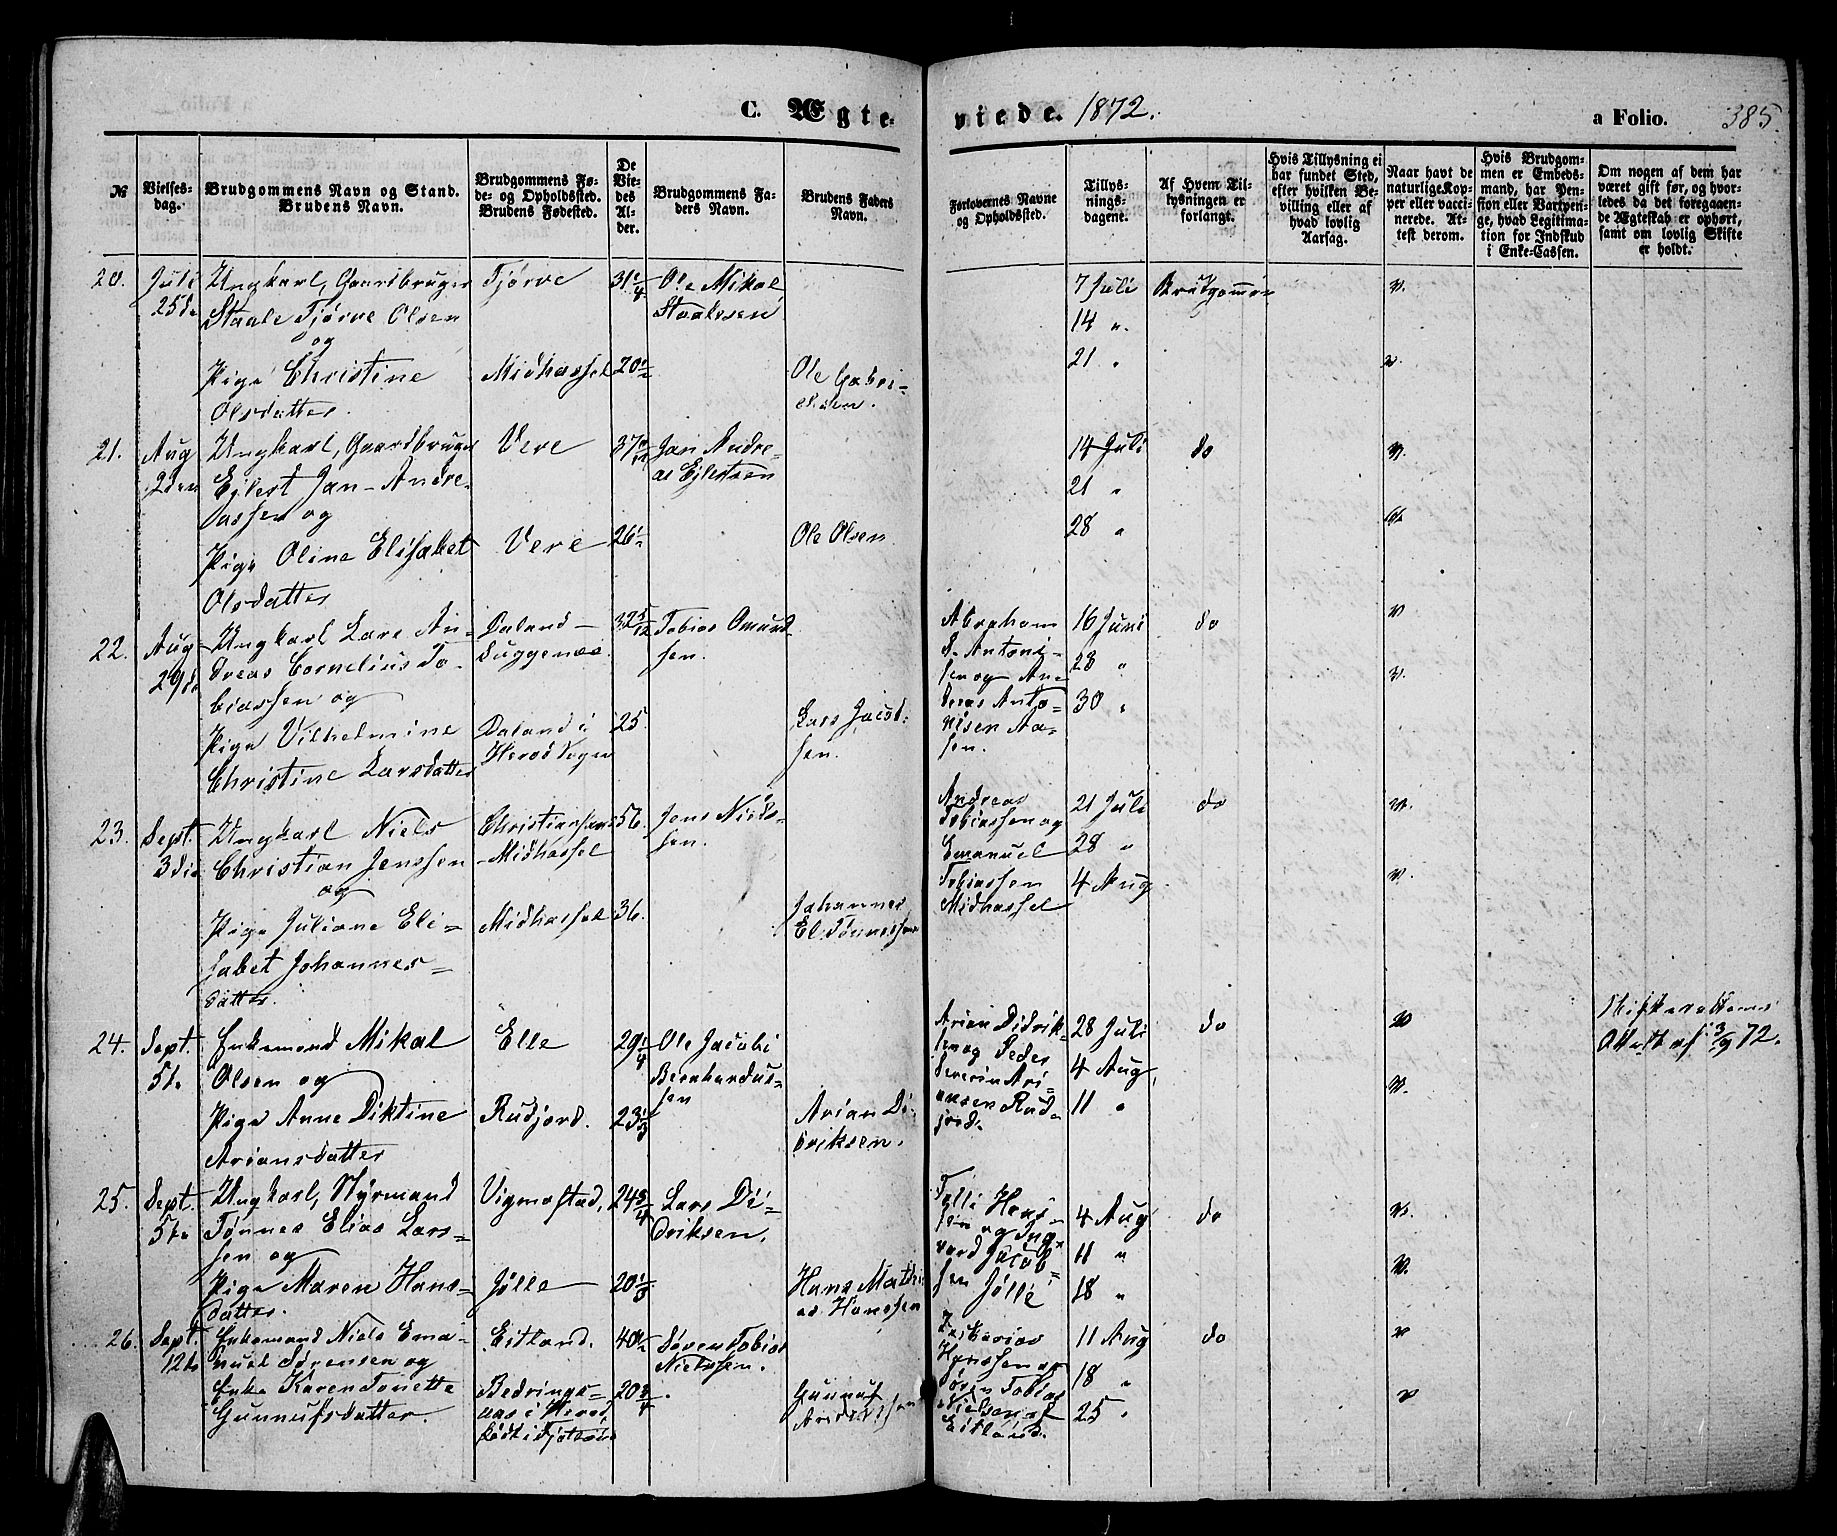 C. Ægte-
viede. 1872.
a Folio. 385.
№
Vielses-
dag.
Brudgommens Navn og Stand.
Brudens Navn.
Brudgommens Fø-
de- og Opholdssted.
Brudens Fødested.
De
Vie-
des
Al-
der.
Brudgommens Fa-
ders Navn.
Brudens Faders
Navn.
Forlovernes Navne
og Opholdssted.
Tillys-
nings-
dagene.
Af Hvem Til-
lysningen er
forlangt.
Hvis Tillysning ei
har fundet Sted,
efter hvilken Be-
villing eller af
hvad lovlig
Aarsag.
Naar havt de
naturlige Kop-
per eller vacci-
nerede. At-
test derom.
Hvis Brudgom-
men er Embeds-
mand, har Pen-
sion eller Vartpen-
ge, hvad Legitima-
tion for Indskud
i Enke-Cassen.
Om nogen af dem har
været gift før, og hvor-
ledes da det foregaaen-
de Ægteskab er ophørt,
samt om lovlig Skifte
er holdt.
20.
Juli
25de
Ungkarl, Gaardbruger
Staale Tjørve Olsen
og
Pige Christine
Olsdatter.
Tjørve
Midhassel
31 1/4
20 1/2
Ole Mikal
Staalesen
Ole Gabri-
elsen.
7 Juli
14 "
21 "
Brudgommen
v.
v.
21.
Aug
2den
Ungkarl, Gaardbruger
Ejlert Jan-Andre-
assen og
Pige Oline Elisabet
Olsdatter
Vere
Vere
26 1/2
Jan Andre-
as Ejlertsen
Ole Olsen
14 Juli
21 "
28 "
do
v.
22.
Aug
29de
Ungkarl Lars An-
dreas Cornelius To-
biassen og
Pige Vilhelmine
Christine Larsdatter
Daland
Duggenæs
Daland i
Herod Sogn
32 5/12
25
Tobias Omund-
sen.
Lars Jacob-
sen.
Abraham
S. Antoni-
sen og An-
dreas Anto-
nisen Aa-
sen.
16 Juni
23 "
30 "
do
v
v.
23.
Sept.
3die
Ungkarl Niels
Christian Jenssen
og
Pige Juliane Eli-
sabet Johannes-
datter.
Christianssand
-Midhassel
Midhassel
56.
36.
Jens Niels-
sen.
Johannes
El. Tønnessen
Andreas
Tobiassen og
Emanuel
Tobiassen
Midhassel
21 Juli
28 "
4 Aug
do
v.
v.
24.
Sept.
5te
Enkemand Mikal
Olsen og
Pige Anne Diktine
Ariansdatter
Elle
Rudjord.
29 1/4
23 1/3
Ole Jacobi
Bernhardus-
sen
Arian Di-
driksen.
Arian Didrik-
sen og Peder
Severin Ari-
ansen Rud-
jord.
28 Juli
4 Aug.
11 "
do
v
v.
Skifterettens
Attest af 3/9 72.
25.
Sept.
5te
Ungkarl, Styrmand
Tønnes Elias Lars-
sen og
Pige Maren Hans-
datter.
Vigmostad.
Jølle
24 3/4
20 1/3
Lars Di-
driksen.
Hans Mathi-
as Hanssen
Tølli Hans-
sen og Ing-
vard Jacob-
sen Jølle
4 Aug
11 "
18 "
do
v.
v.
26.
Sept.
12te
Enkemand Niels Ema-
nuel Sørensen og
Enke Karen Tonette
Gunnufsdatter.
Eitland.
Bedrings-
aas i Herod,
født i
40 1/2
20 3/4
Søren Tobias
Nielssen.
Gunnuf
Zakarias
Hanssen og
Søren Tobias
Nielsen af
Eitland.
11 Aug
18 "
25 "
do
v
v